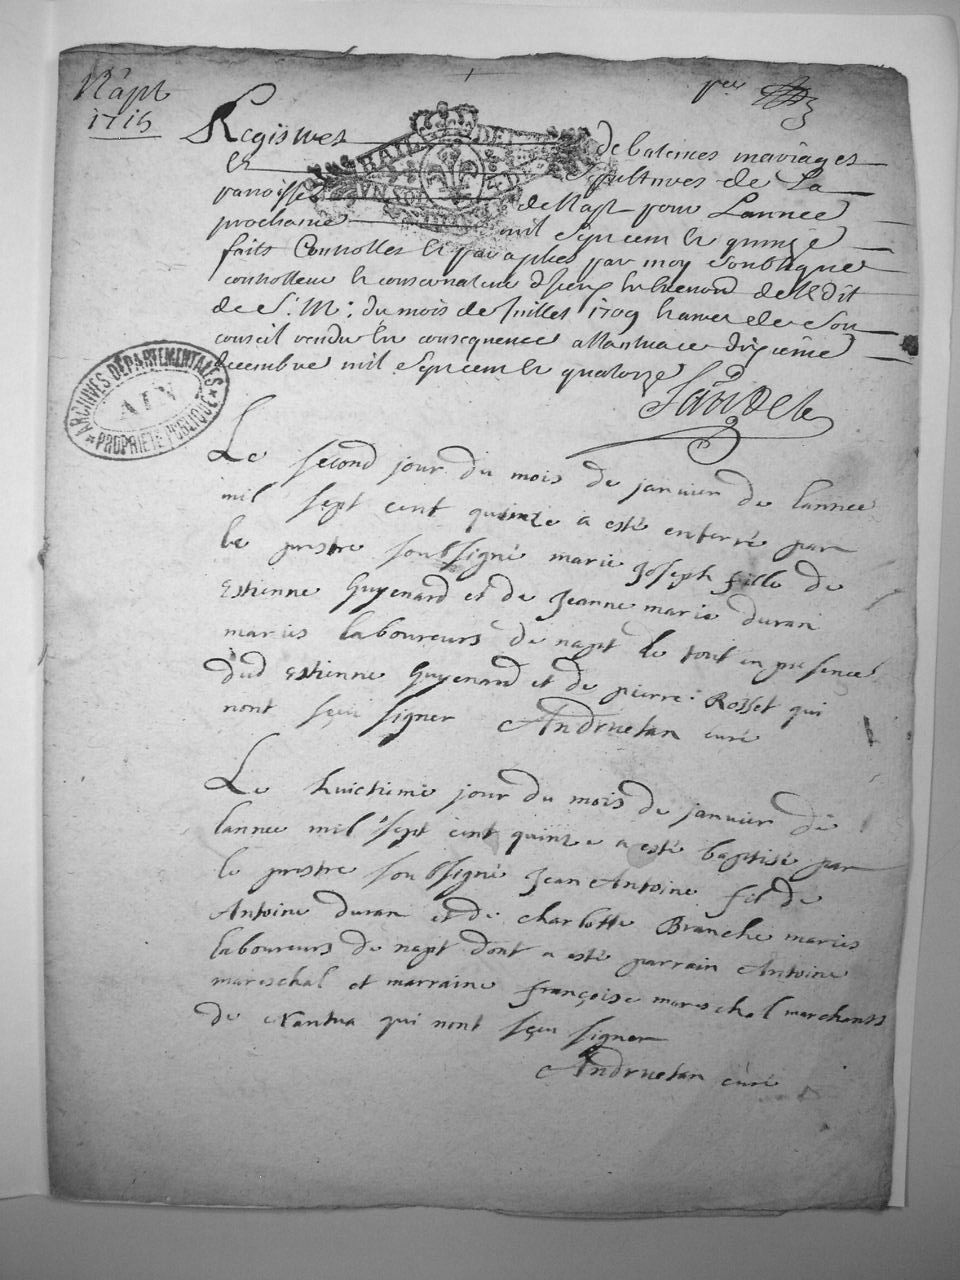 Napt
1715
Registres de batemes mariages
et Sepultures de La
parroisse de Napt pour Lannee
prochaine mil Sept cent et quinze
faits Controlles et paraphes par moy Soubsigne
controlleur et conservateur d'Iceux en execution de l'Edit
de S. M: du mois de Juillet 1709 et arret de Son
conseil rendu en consequence a Nantua ce dixieme
decembre mil Sept cent et quatorze
GENERALITE DE
ARCHIVES DÉPARTEMENTALES
AIN
PROPRIÉTÉ PUBLIQUE
Le second jour du mois de janvier de lannee
mil sept cent quinze a esté enterré par
le prestre soubsigné marie Joseph fille de
Estienne Guyenard et de Jeanne marie duran
maries laboureurs de napt le tout en presence
dud Estienne Guyenard et de pierre Rosset qui
nont sçeu signer Andruetan curé
Le huictieme jour du mois de janvier de
lannee mil sept cent quinze a esté baptisé par
le prestre soubsigné Jean Antoine fil de
Antoine duran et de charlotte Branche maries
laboureurs de napt dont a esté parrain Antoine
mareschal et marraine françoise mareschal marchants
de Nantua qui nont sçeu signer
Andruetan curé